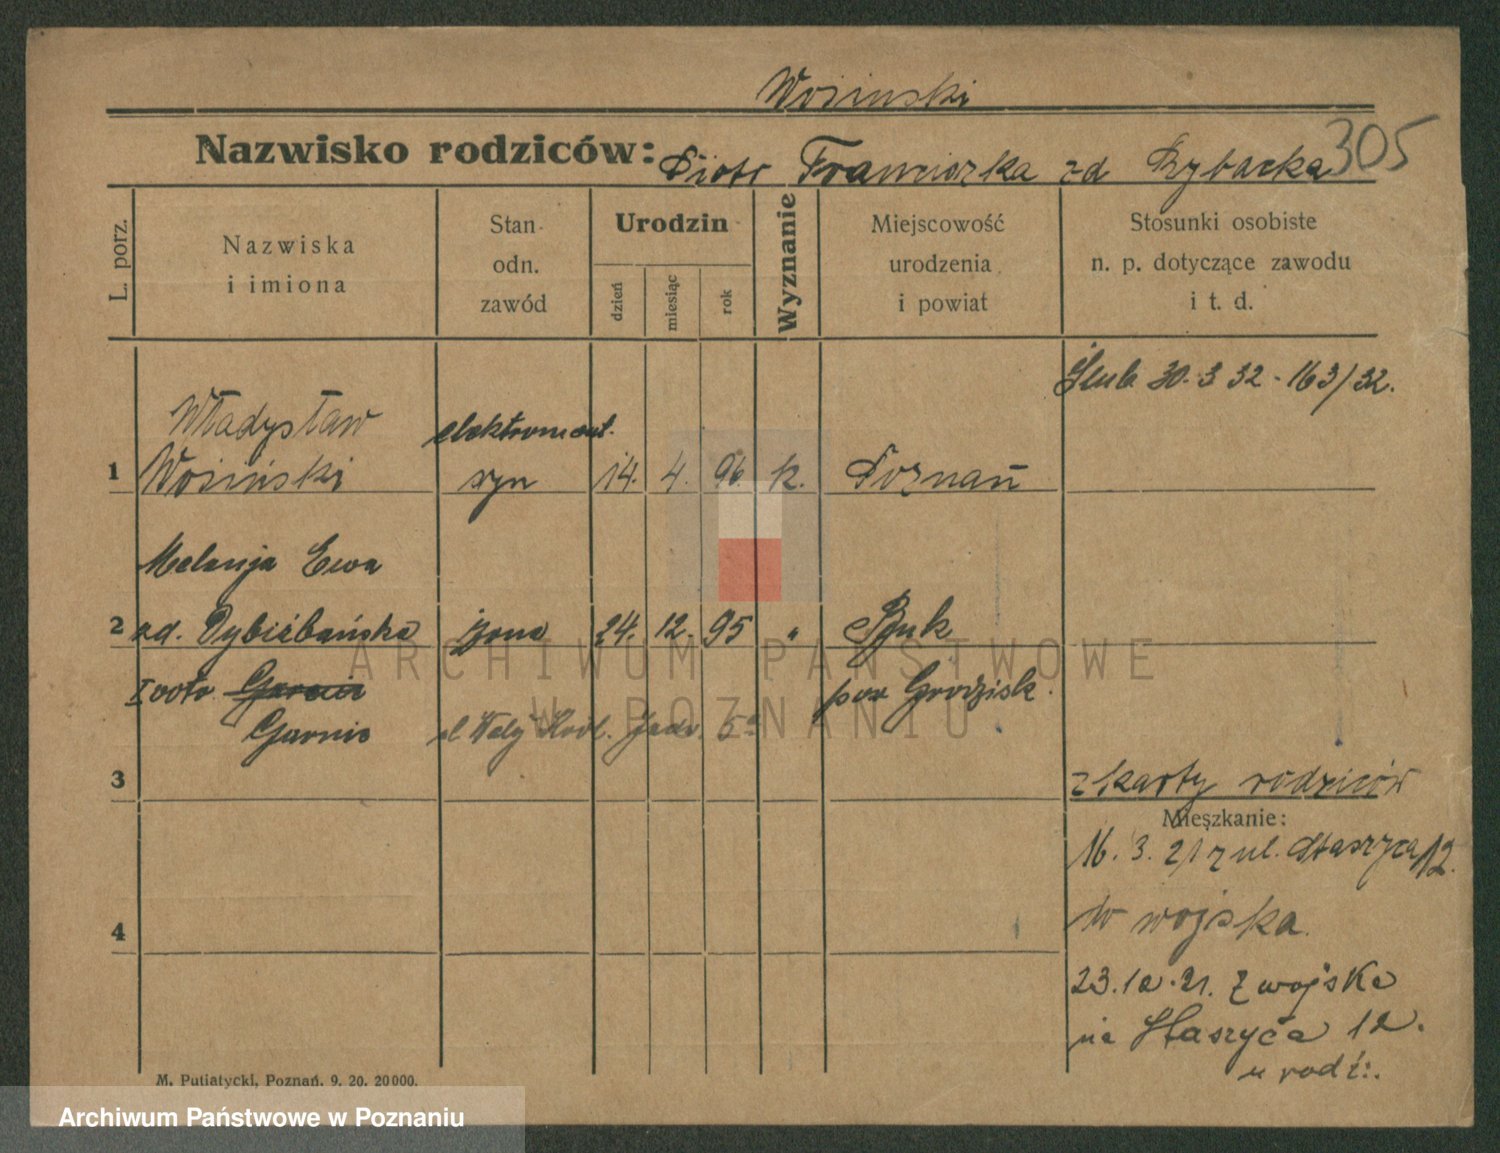 Wosinski
305
Nazwisko rodziców: Piotr Franciszka zd Rybacka
L. porz.
Nazwiska i imiona
Stan odn. zawód
Urodzin
dzień
miesiąc
rok
Wyznanie
Miejscowość urodzenia i powiat
Stosunki osobiste n. p. dotyczące zawodu i t. d.
Ślub 30. 3 32 - 163/32.
Władysław elektromont.
1 Wosiński syn 14. 4. 96. k. Poznań
Melanja Ewa
2 zd. Dybizbańska żona 24. 12. 95 " Buk
I voto Garnia pow Grodzisk.
Garnie
ul Wały Król. Jadw. 5a
3
z karty rodziców
Mieszkanie:
16. 3. 21 z ul. Staszyca 12.
4 do wojska.
23. 12. 21. z wojska
na Staszyca 12.
u rodz.
M. Putiatycki, Poznań. 9. 20. 20000.
ARCHIWUM PAŃSTWOWE
W POZNANIU
Archiwum Państwowe w Poznaniu